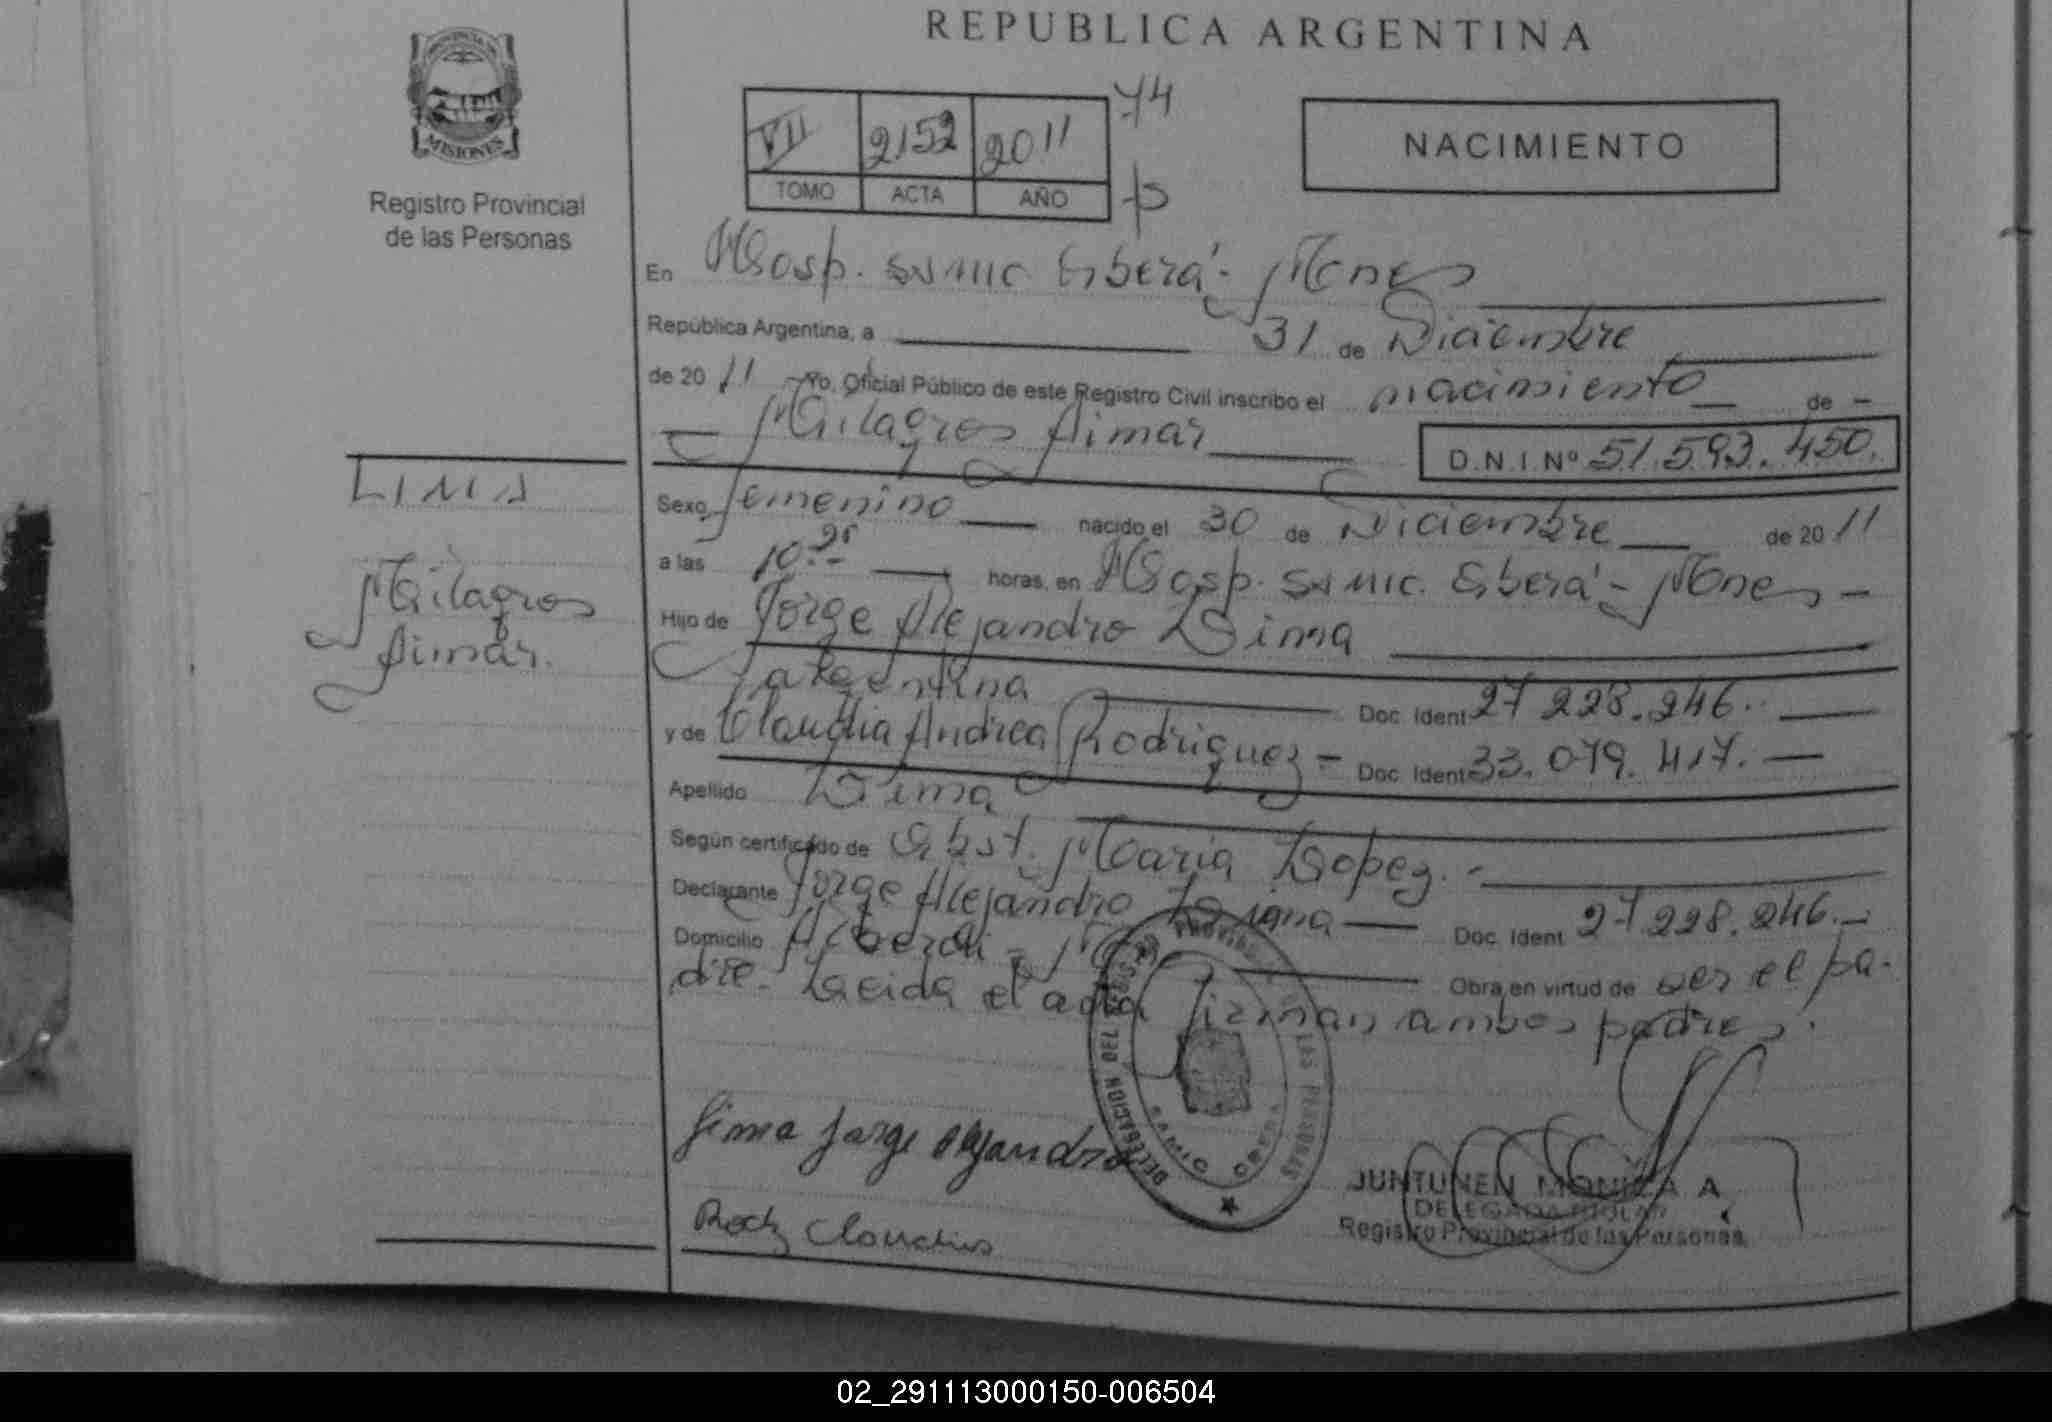 REPUBLICA ARGENTINA
PROVINCIA DE
MISIONES
Registro Provincial
de las Personas
VII 2152 2011 74
TOMO ACTA AÑO
NACIMIENTO
En Hosp. SAMIC Oberá - Mnes
República Argentina, a 31 de Diciembre
de 2011 Yo, Oficial Público de este Registro Civil inscribo el nacimiento de -
Milagros Aimar
D.N.I Nº 51.593.450.
LIMA
Milagros
Aimar.
Sexo femenino nacido el 30 de Diciembre de 2011
a las 10 horas, en Hosp. SAMIC. Oberá - Mnes -
Hijo de Jorge Alejandro Lima
Argentina Doc. Ident 27 228.246.
y de Claudia Andrea Rodriguez - Doc. Ident 33.079.417.
Apellido Lima
Según certificado de Obst. Maria Lopez. -
Declarante Jorge Alejandro Lima Doc. Ident 27 228.246. -
Domicilio Alberdi - Obra en virtud de ser el pa-
dre. Leida el acta firman ambos padres.
DELEGACION DEL REGISTRO PROVINCIAL DE LAS PERSONAS
RAMON OBERA
Lima Jorge Alejandro
Claudia
JUNTUNEN MONICA A
DELEGADA TITULAR
Registro Provincial de las Personas
02_291113000150-006504